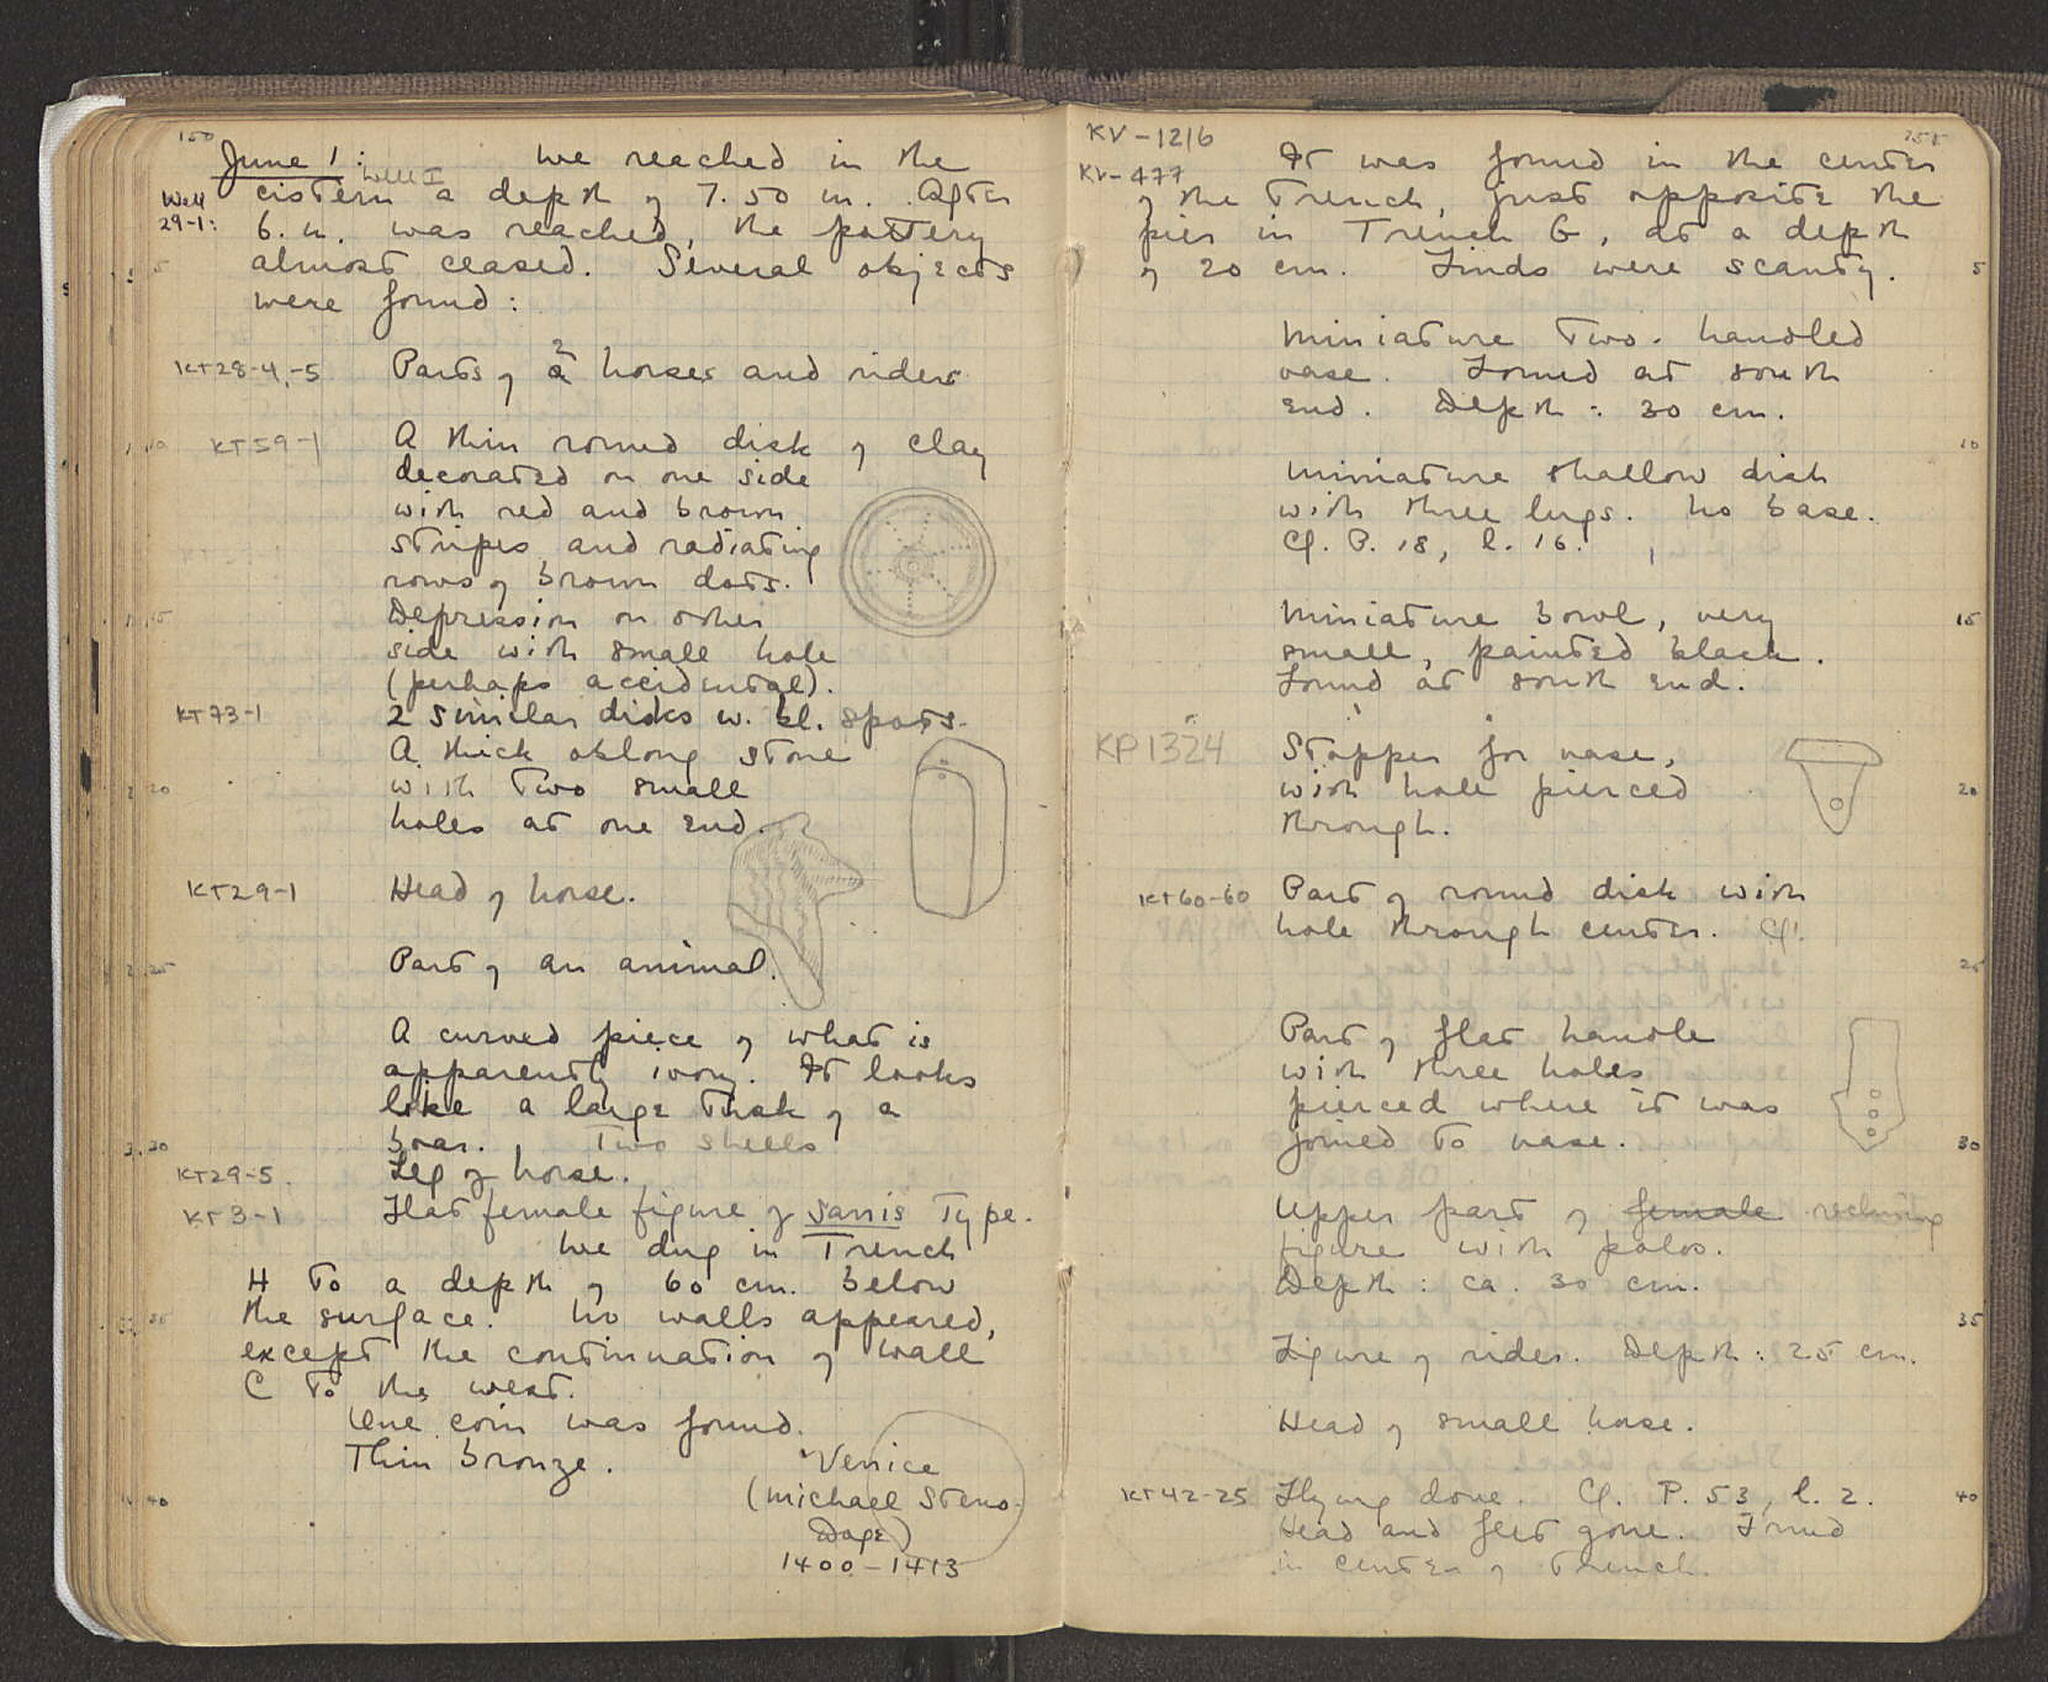 150
June 1: We reached in the
Well I
Well cistern a depth of 7.50 m. After
29-1: 6. m. was reached, the pottery
5 almost ceased. Several objects
were found:
KT28-4,-5 Parts of a 2 horses and riders
10 KT59-1 A thin round disk of clay
decorated on one side
with red and brown
stripes and radiating
rows of brown dots.
15 Depression on other
side with small hole
(perhaps accidental).
KT73-1 2 similar disks w. bl. spots.
A thick oblong stone
20 with two small
holes at one end.
KT29-1 Head of horse.
25 Part of an animal.
A curved piece of what is
apparently ivory. It looks
like a large tusk of a
30 boar. Two shells
KT29-5. Leg of horse.
KT3-1 Flat female figure of sanis type.
We dug in Trench
H to a depth of 60 cm. below
35 the surface. No walls appeared,
except the continuation of wall
C to the west.
One coin was found.
Thin bronze. Venice
40 (Michael Steno.
Doge)
1400-1413
KV-1216 151
KV-477 It was found in the center
of the Trench, just opposite the
pier in Trench G, at a depth
of 20 cm. Finds were scanty. 5
Miniature two-handled
vase. Found at south
end. Depth: 30 cm.
10
Miniature shallow dish
with three lugs. No base.
Cf. P. 18, l. 16.
Miniature bowl, very 15
small, painted black.
Found at south end.
KP1324 Stopper for vase,
with hole pierced 20
through.
KT60-60 Part of round disk with
hole through center. Cf.
25
Part of flat handle
with three holes
pierced where it was
joined to vase. 30
Upper part of female reclining
figure with polos.
Depth: ca. 30 cm.
35
Figure of rider. Depth: 25 cm.
Head of small horse.
KT42-25 Flying dove. Cf. P. 53, l. 2. 40
Head and feet gone. Found
in center of trench.